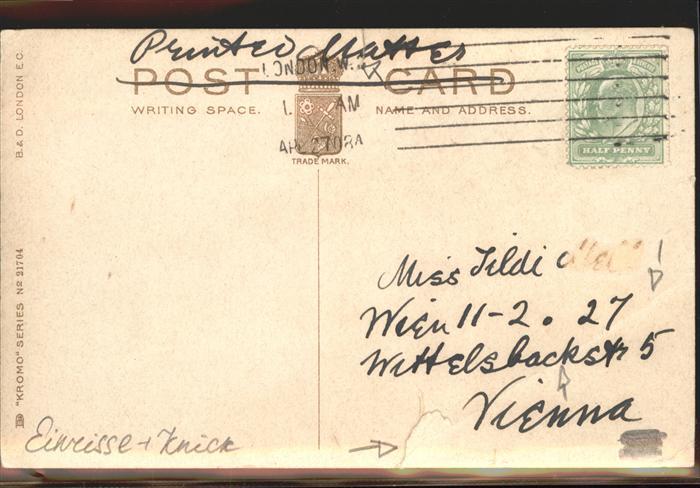 Printed Matter
POST CARD
LONDON.W.
WRITING SPACE.
NAME AND ADDRESS.
AM
AP 27 08A
TRADE MARK.
HALF PENNY
B.& D. LONDON E.C.
"KROMO" SERIES No 21704
Miss Tildi
Wien 11-2. 27
Wittelsbackstr 5
Vienna
Einrisse + Knick